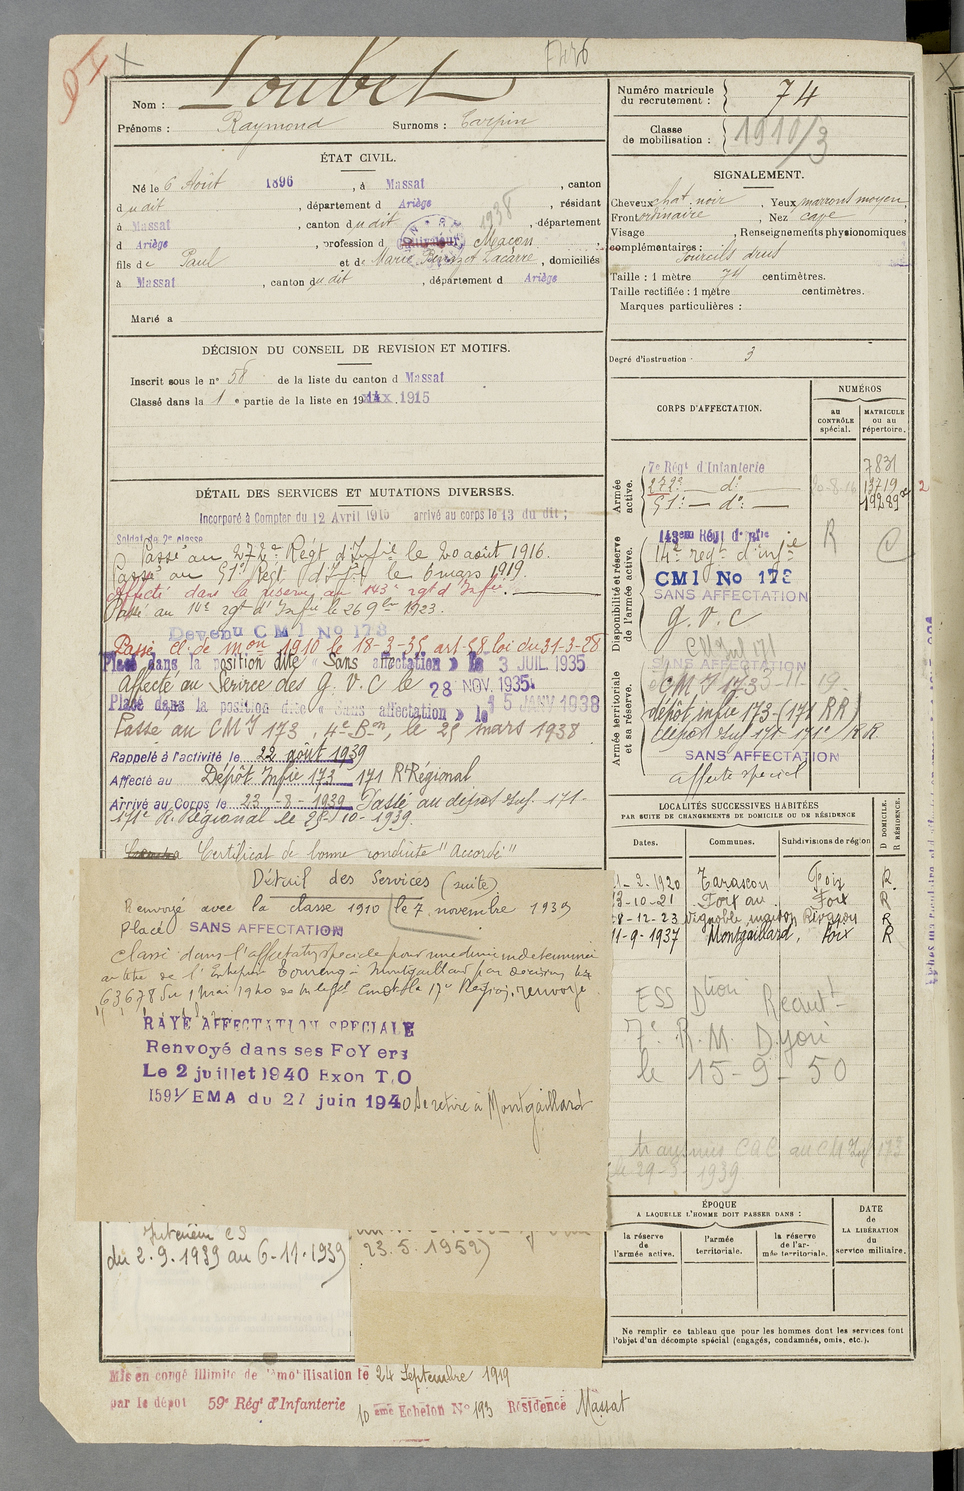 Nom : Loubet
Prénoms : Raymond Surnoms : Carpin
ÉTAT CIVIL.
Né le 6 Août 1896, à Massat, canton
dudit, département d Ariège, résidant
à Massat, canton dudit, département
d Ariège, profession d Cultivateur, Maçon 1938
fils de Paul et de Marie Lacarré, domiciliés
à Massat, canton dudit, département d Ariège
Marié a
DÉCISION DU CONSEIL DE REVISION ET MOTIFS.
Inscrit sous le n° 58 de la liste du canton d Massat
Classé dans la 1e partie de la liste en 1915
DÉTAIL DES SERVICES ET MUTATIONS DIVERSES.
Incorporé à Compter du 12 Avril 1915 arrivé au corps le 13 du dit ;
Soldat de 2e classe
Passé au 272e Régt d'Infie le 20 août 1916.
Passé au 51e Régt d'Infie le 6 mars 1919.
Affecté dans la réserve au 143e rgt d'Infie.
Passé au 14e rgt d'Infie le 26 9bre 1923.
Devenu CMI No 173
Passé cl. de mon 1910 le 18-3-35 art 58 loi du 31-3-28
Placé dans la position dite « Sans affectation » le 3 JUIL. 1935
Affecté au Service des G.V.C le 28 NOV. 1935.
Placé dans la position dite « Sans affectation » le 15 JANV 1938
Passé au CMI 173, 4e Bon, le 25 mars 1938
Rappelé à l'activité le 22 août 1939
Affecté au Dépôt Infie 173 - 171 Rt Régional
Arrivé au Corps le 23-8-1939 Passé au dépôt Inf. 171-
171e R. Régional le 25-10-1939.
Certificat de bonne conduite "Accordé"
Détail des Services (suite)
Renvoyé avec la classe 1910 le 7 novembre 1939
Placé SANS AFFECTATION
Classé dans l'affectation spéciale pour une durée indéterminée
au titre de l'Entreprise à Montgaillard par décision No
63678 du 1 mai 1940 de la 17e Région, renvoyé
RAYÉ AFFECTATION SPECIALE
Renvoyé dans ses FoYers
Le 2 juillet 1940 Exon T.O
1591/EMA du 27 juin 1940 Se retire à Montgaillard
Intérieur CS
du 2.9.1939 au 6-11-1939
23.5.1952)
Mis en congé illimité de démobilisation le 24 Septembre 1919
par le dépôt 59e Régt d'Infanterie 10 ème Echelon No 193 Résidence Massat
Numéro matricule du recrutement : 74
Classe de mobilisation : 1910/3
SIGNALEMENT.
Cheveux chat. noir, Yeux marrons moyen,
Front ordinaire, Nez cave,
Visage , Renseignements physionomiques
complémentaires : Sourcils drus
Taille : 1 mètre 74 centimètres.
Taille rectifiée : 1 mètre centimètres.
Marques particulières :
Degré d'instruction : 3
CORPS D'AFFECTATION.
NUMÉROS
au CONTRÔLE spécial.
MATRICULE ou au répertoire.
Armée active.
7e Régt d'Infanterie 7831
272e — do — 13719
51e — do — 19289
2
Disponibilité et réserve de l'armée active.
143eme Régt d'Infie
14e regt d'infie R
CMI No 173
SANS AFFECTATION
G.V.C
CM Inf 171
Armée territoriale et sa réserve.
SANS AFFECTATION
CMI 173
dépôt infie 173-(171 RR)
dépôt Inf 171-171e RR
SANS AFFECTATION
affecté spécial
LOCALITÉS SUCCESSIVES HABITÉES
PAR SUITE DE CHANGEMENTS DE DOMICILE OU DE RÉSIDENCE
Dates. Communes. Subdivisions de région D DOMICILE. R RÉSIDENCE.
1-2-1920 Tarascon Foix R.
13-10-21 Foix Foix R
8-12-23 Vignoble R
11-9-1937 Montgaillard, Foix R
ESS Dtion Recrutt
7e R.M. Dijon
le 15-9-50
transmis CAC au CM Inf 173
le 29-8-1939
ÉPOQUE
A LAQUELLE L'HOMME DOIT PASSER DANS :
la réserve de l'armée active.
l'armée territoriale.
la réserve de l'armée territoriale.
DATE de LA LIBÉRATION du service militaire.
Ne remplir ce tableau que pour les hommes dont les services font
l'objet d'un décompte spécial (engagés, condamnés, omis, etc.).